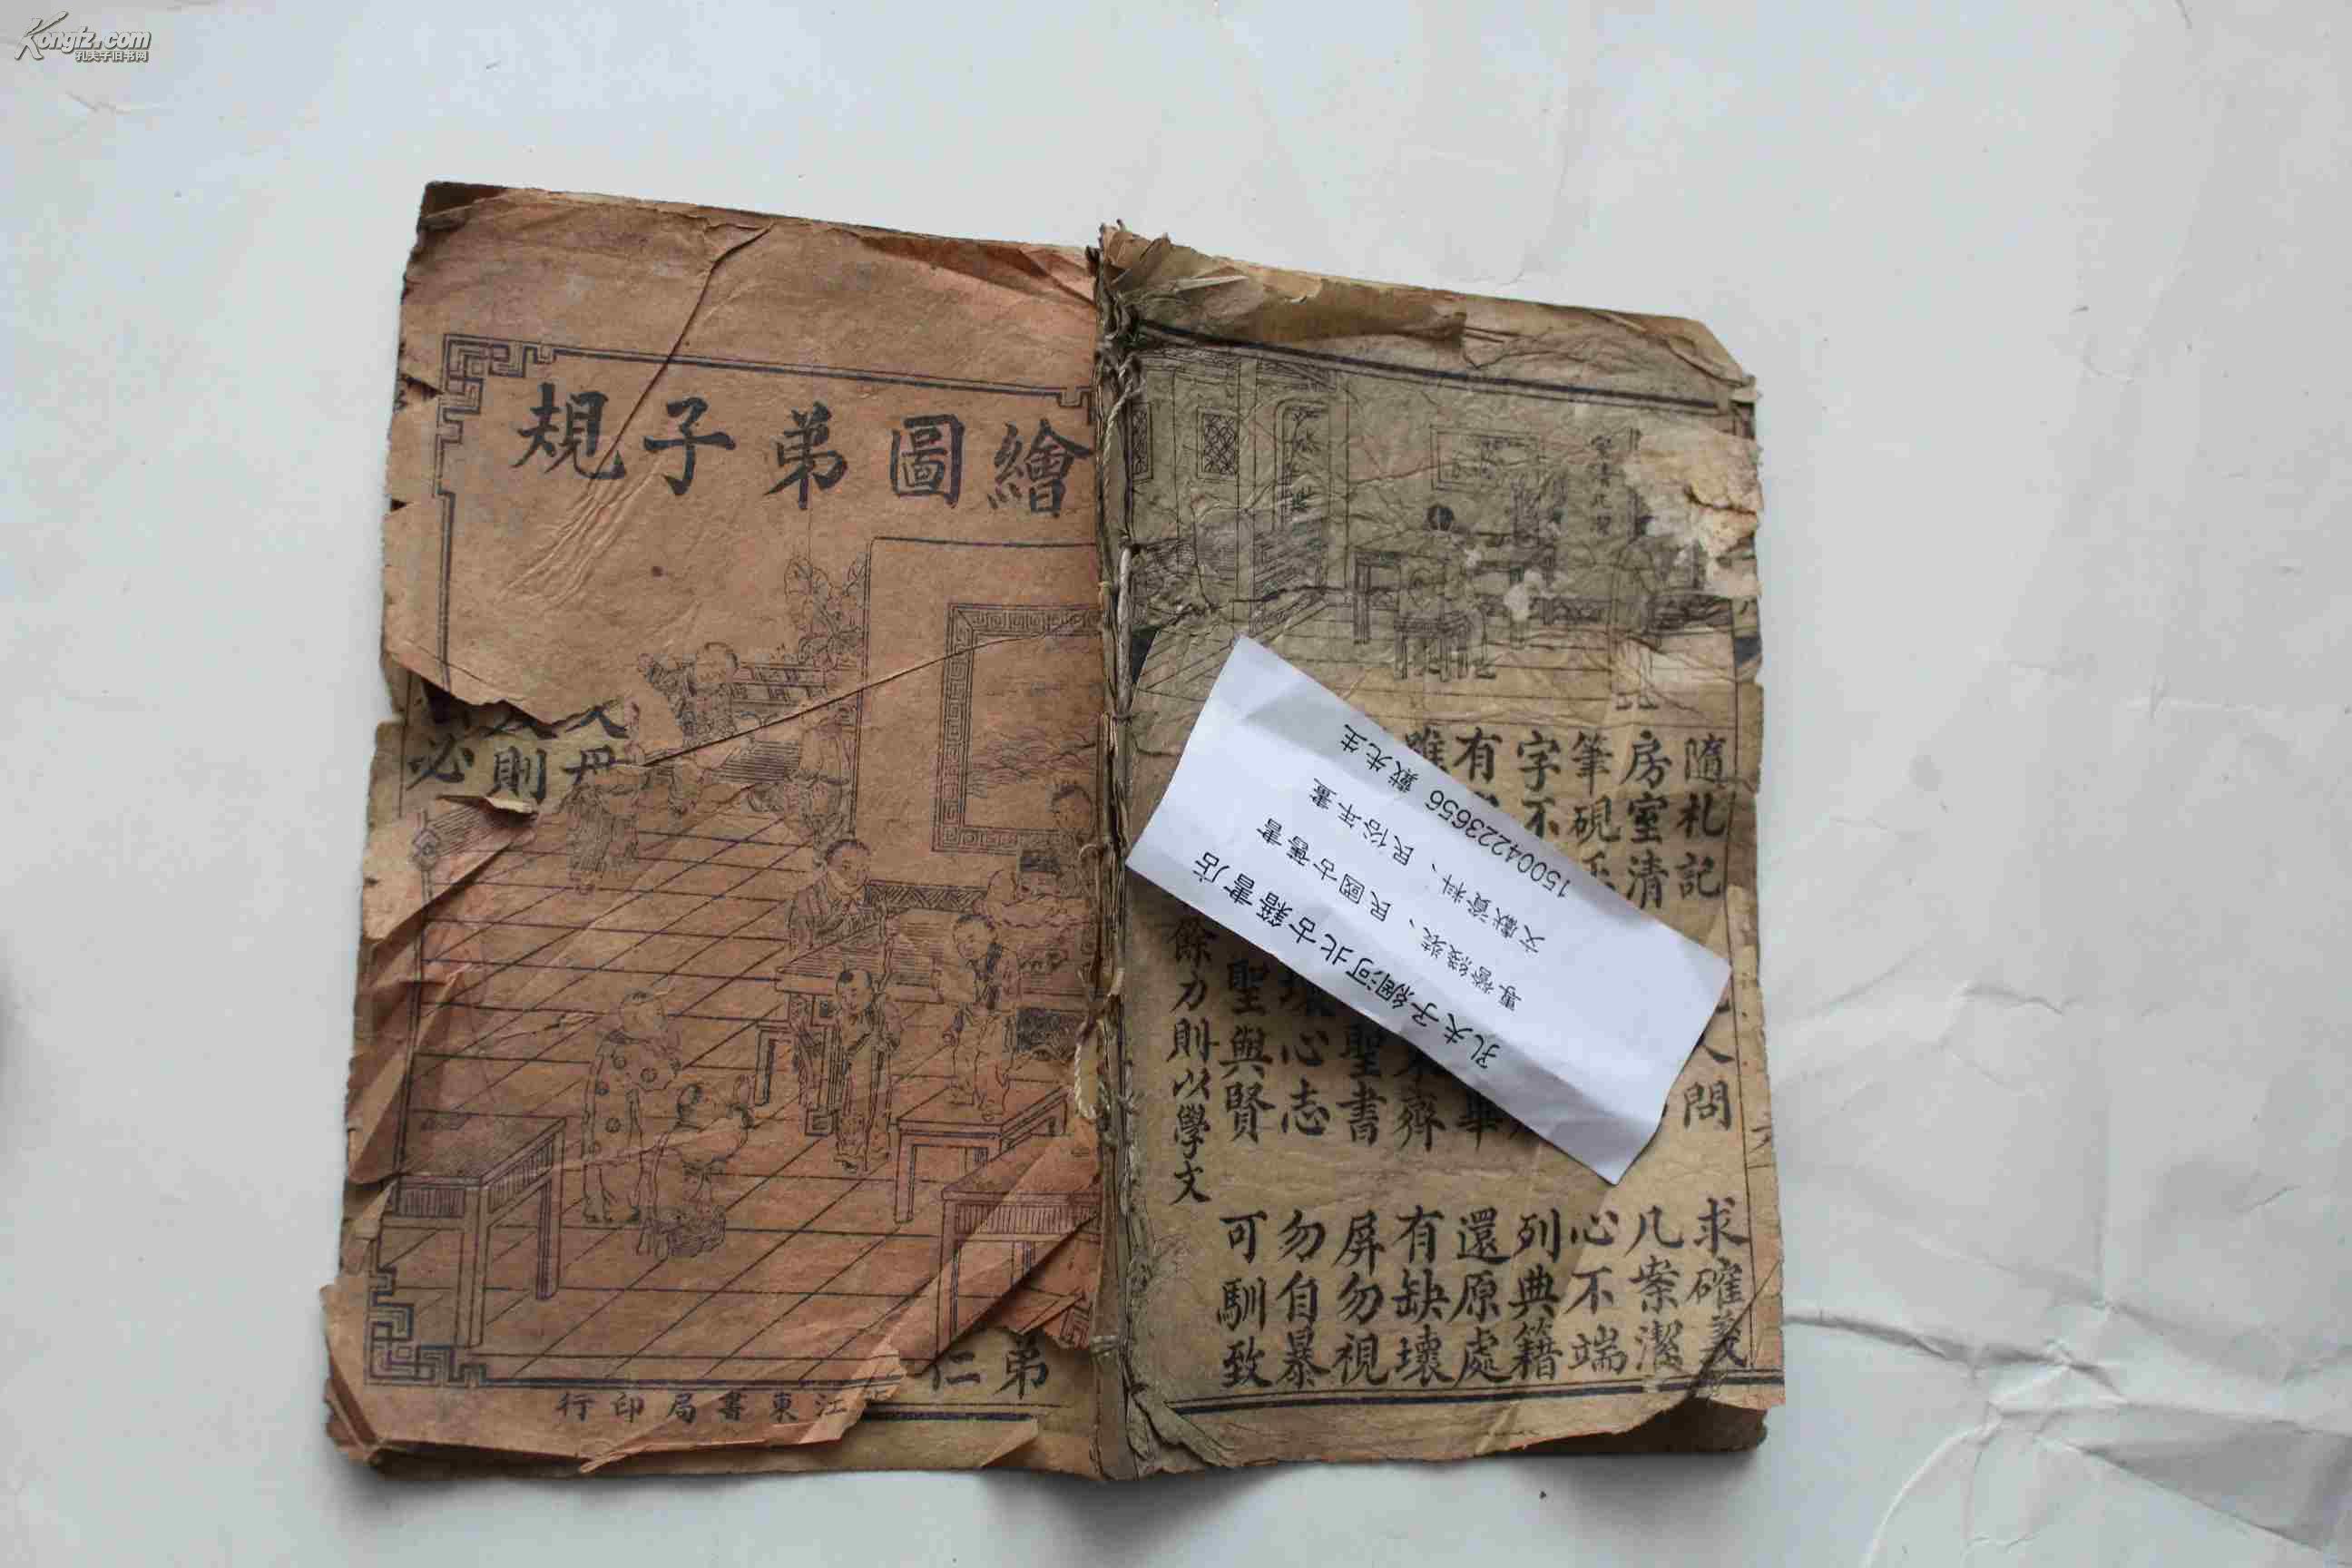 Kongfz.com
孔夫子旧书网
繪圖弟子規
母
則
必
弟仁
江東書局印行
隨札記 人問 求確義
房室清 几案潔
筆硯 心不端
字不 列典籍
有 畢 還原處
雖 齊 有缺壞
聖書 屏勿視
壞心志 勿自暴
聖與賢 可馴致
餘力則以學文
孔夫子網河北古籍書店
專營綫裝、民國古舊書
文獻資料、民俗年畫
15004223656 戴先生